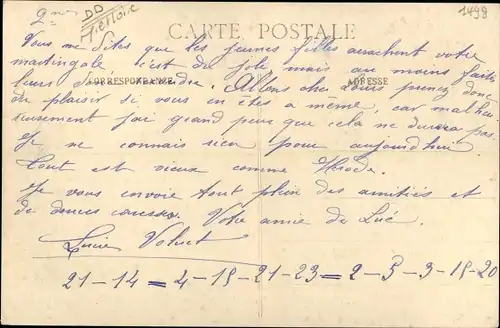 2me DD 1498
CARTE POSTALE
Vous me dites que les jeunes filles arrachent votre
martingale c'est du joli mais au moins faites
CORRESPONDANCE ADRESSE
leur. Allons cher Louis prenez donc
du plaisir si vous en êtes a même, car malheu
reusement j'ai grand peur que cela ne durera pas
Je ne connais rien pour aujourd'hui
Tout est vieux comme Hérode.
Je vous envoie tout plein des amitiés et
de douces caresses. Votre amie de Lué
Lucie
21-14=4-15-21-23=2-5-3-15-20